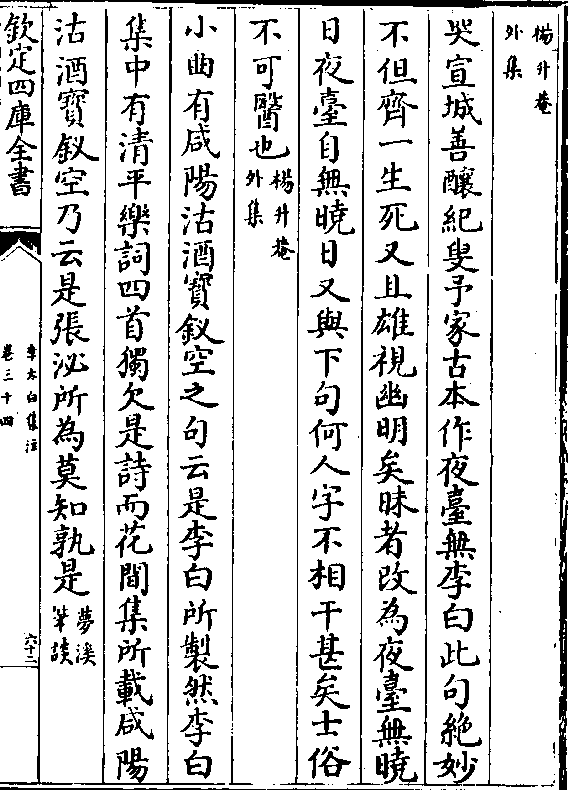 楊升菴
外集
哭宣城善釀紀叟予家古本作夜臺無李白此句絶妙
不但齊一生死又且雄視幽明矣昧者改為夜臺無曉
日夜臺自無曉日又與下句何人字不相干甚矣士俗
不可醫也楊升菴
外集
小曲有咸陽沽酒寶釵空之句云是李白所製然李白
集中有清平樂詞四首獨欠是詩而花間集所載咸陽
沽酒寶釵空乃云是張泌所為莫知孰是夢溪
筆談
欽定四庫全書
李太白集注
卷三十四
六十二